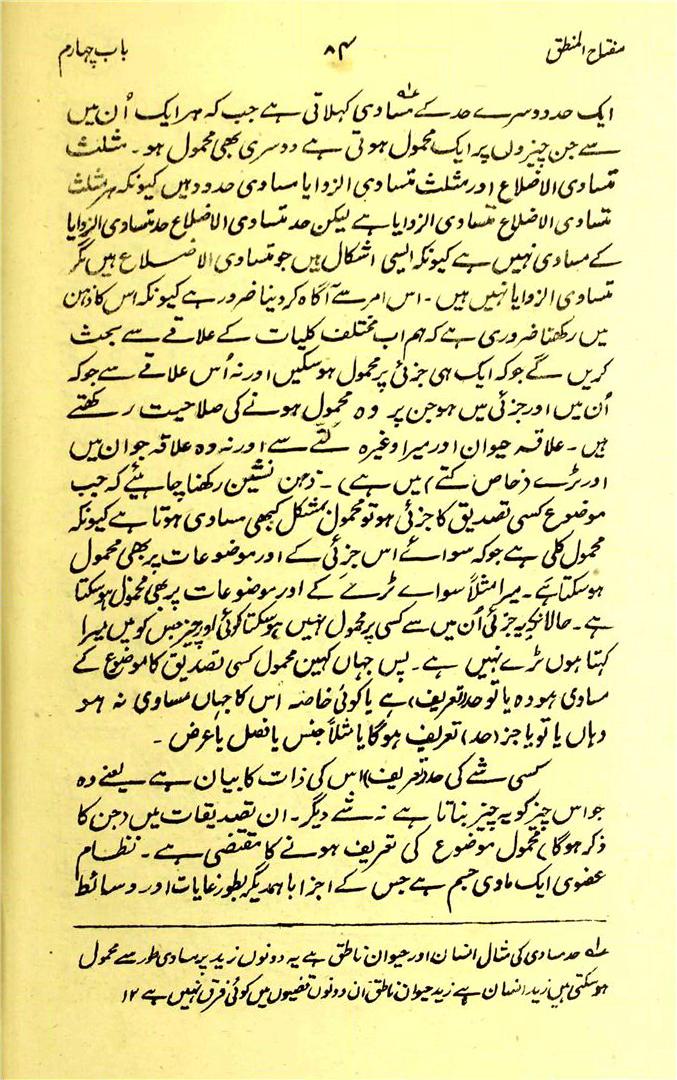 مفتاح المنطق ۸۴ باب چہارم
ایک حد دوسرے حد کے مساوی کہلاتی ہے جب کہ ہر ایک اُن میں
سے جن چیزوں پر ایک محمول ہوتی ہے دوسری بھی محمول ہو۔ مثلث
متساوی الاضلاع اور مثلث متساوی الزوایا مساوی حدود ہیں کیونکہ ہر مثلث
متساوی الاضلاع متساوی الزوایا ہے لیکن حد متساوی الاضلاع حد متساوی الزوایا
کے مساوی نہیں ہے کیونکہ ایسی اشکال ہیں جو متساوی الاضلاع ہیں مگر
متساوی الزوایا نہیں ہیں۔ اس امر سے آگاہ کر دینا ضرور ہے کیونکہ اس کا ذہن
میں رکھنا ضروری ہے کہ ہم اب مختلف کلیات کے علاقے سے بحث
کریں گے جو کہ ایک ہی جزئی پر محمول ہو سکیں اور نہ اُس علاقے سے جو کہ
اُن میں اور جزئی میں ہو جن پر وہ محمول ہونے کی صلاحیت رکھتے
ہیں۔ علاقہ حیوان اور میرا وغیرہ کتے سے اور نہ وہ علاقہ جو ان میں
اور ٹرے (خاص کتے) میں ہے)۔ ذہن نشین رکھنا چاہئیے کہ جب
موضوع کسی تصدیق کا جزئی ہو تو محمول بمشکل کبھی مساوی ہوتا ہے کیونکہ
محمول کلی ہے جو کہ سوائے اس جزئی کے اور موضوعات پر بھی محمول
ہو سکتا ہے۔ میرا مثلاً سواے ٹرے کے اور موضوعات پر بھی محمول ہو سکتا
ہے۔ حالانکہ یہ جزئی اُن میں سے کسی پر محمول نہیں ہو سکتا کوئی اور چیز جس کو میں میرا
کہتا ہوں ٹرے نہیں ہے۔ پس جہاں کہیں محمول کسی تصدیق کا موضوع کے
مساوی ہو وہ یا تو حد (تعریف) ہے یا کوئی خاصہ اس کا جہاں مساوی نہ ہو
وہاں یا تو یا جز (حد) تعریف ہوگا یا مثلاً جنس یا فصل یا عرض۔
کسی شے کی حد (تعریف) اس کی ذات کا بیان ہے یعنے وہ
جو اس چیز کو یہ چیز بناتا ہے نہ شے دیگر۔ ان تصدیقات میں (جن کا
ذکر ہوگا) محمول موضوع کی تعریف ہونے کا مقتضی ہے۔ نظام
عضوی ایک مادی جسم ہے جس کے اجزا باہمدیگر بطور غایات اور وسائط
عہ حد مساوی کی مثال انسان اور حیوان ناطق ہے یہ دونوں زید پر مساوی طور سے محمول
ہو سکتی ہیں زید انسان ہے زید حیوان ناطق ان دونوں قضیوں میں کوئی فرق نہیں ہے ۱۲